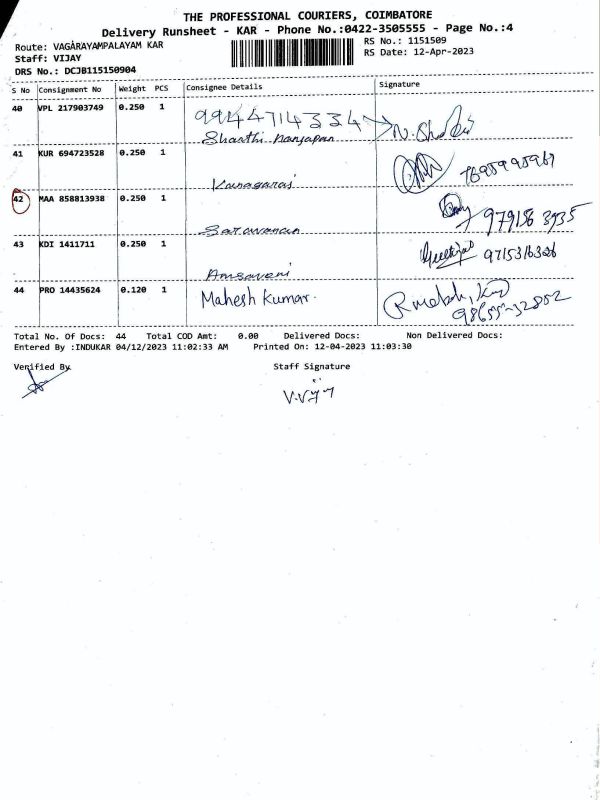 THE PROFESSIONAL COURIERS, COIMBATORE
Delivery Runsheet - KAR - Phone No.:0422-3505555 - Page No.:4
Route: VAGARAYAMPALAYAM KAR
RS No.: 1151509
Staff: VIJAY
RS Date: 12-Apr-2023
DRS No.: DCJB115150904
S No Consignment No Weight PCS Consignee Details Signature
40 VPL 217903749 0.250 1 9944714334
Shanthi nanjapan
41 KUR 694723528 0.250 1 7695995967
Kanagaraj
42 MAA 858813938 0.250 1
Saravanan
43 KDI 1411711 0.250 1 9715316326
Amsaveni
44 PRO 14435624 0.120 1 Mahesh Kumar.
98655-32852
Total No. Of Docs: 44 Total COD Amt: 0.00 Delivered Docs: Non Delivered Docs:
Entered By :INDUKAR 04/12/2023 11:02:33 AM Printed On: 12-04-2023 11:03:30
Verified By Staff Signature